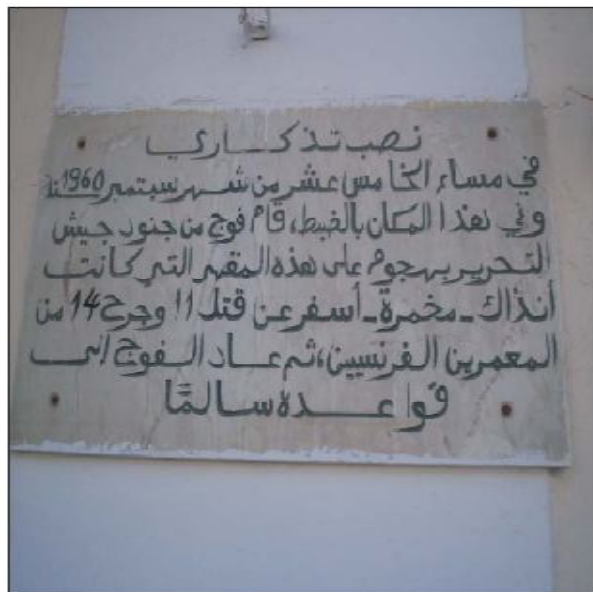 نصب تذكاري
في مساء الخامس عشر من شهر سبتمبر 1960 سنة
وفي هذا المكان بالضبط، قام فوج من جنود جيش
التحرير بهجوم على هذه المقهى التي كانت
أنذاك - مخمرة - أسفر عن قتل 11 وجرح 14 من
المعمرين الفرنسيين، ثم عاد الفوج إلى
قواعده سالمًا